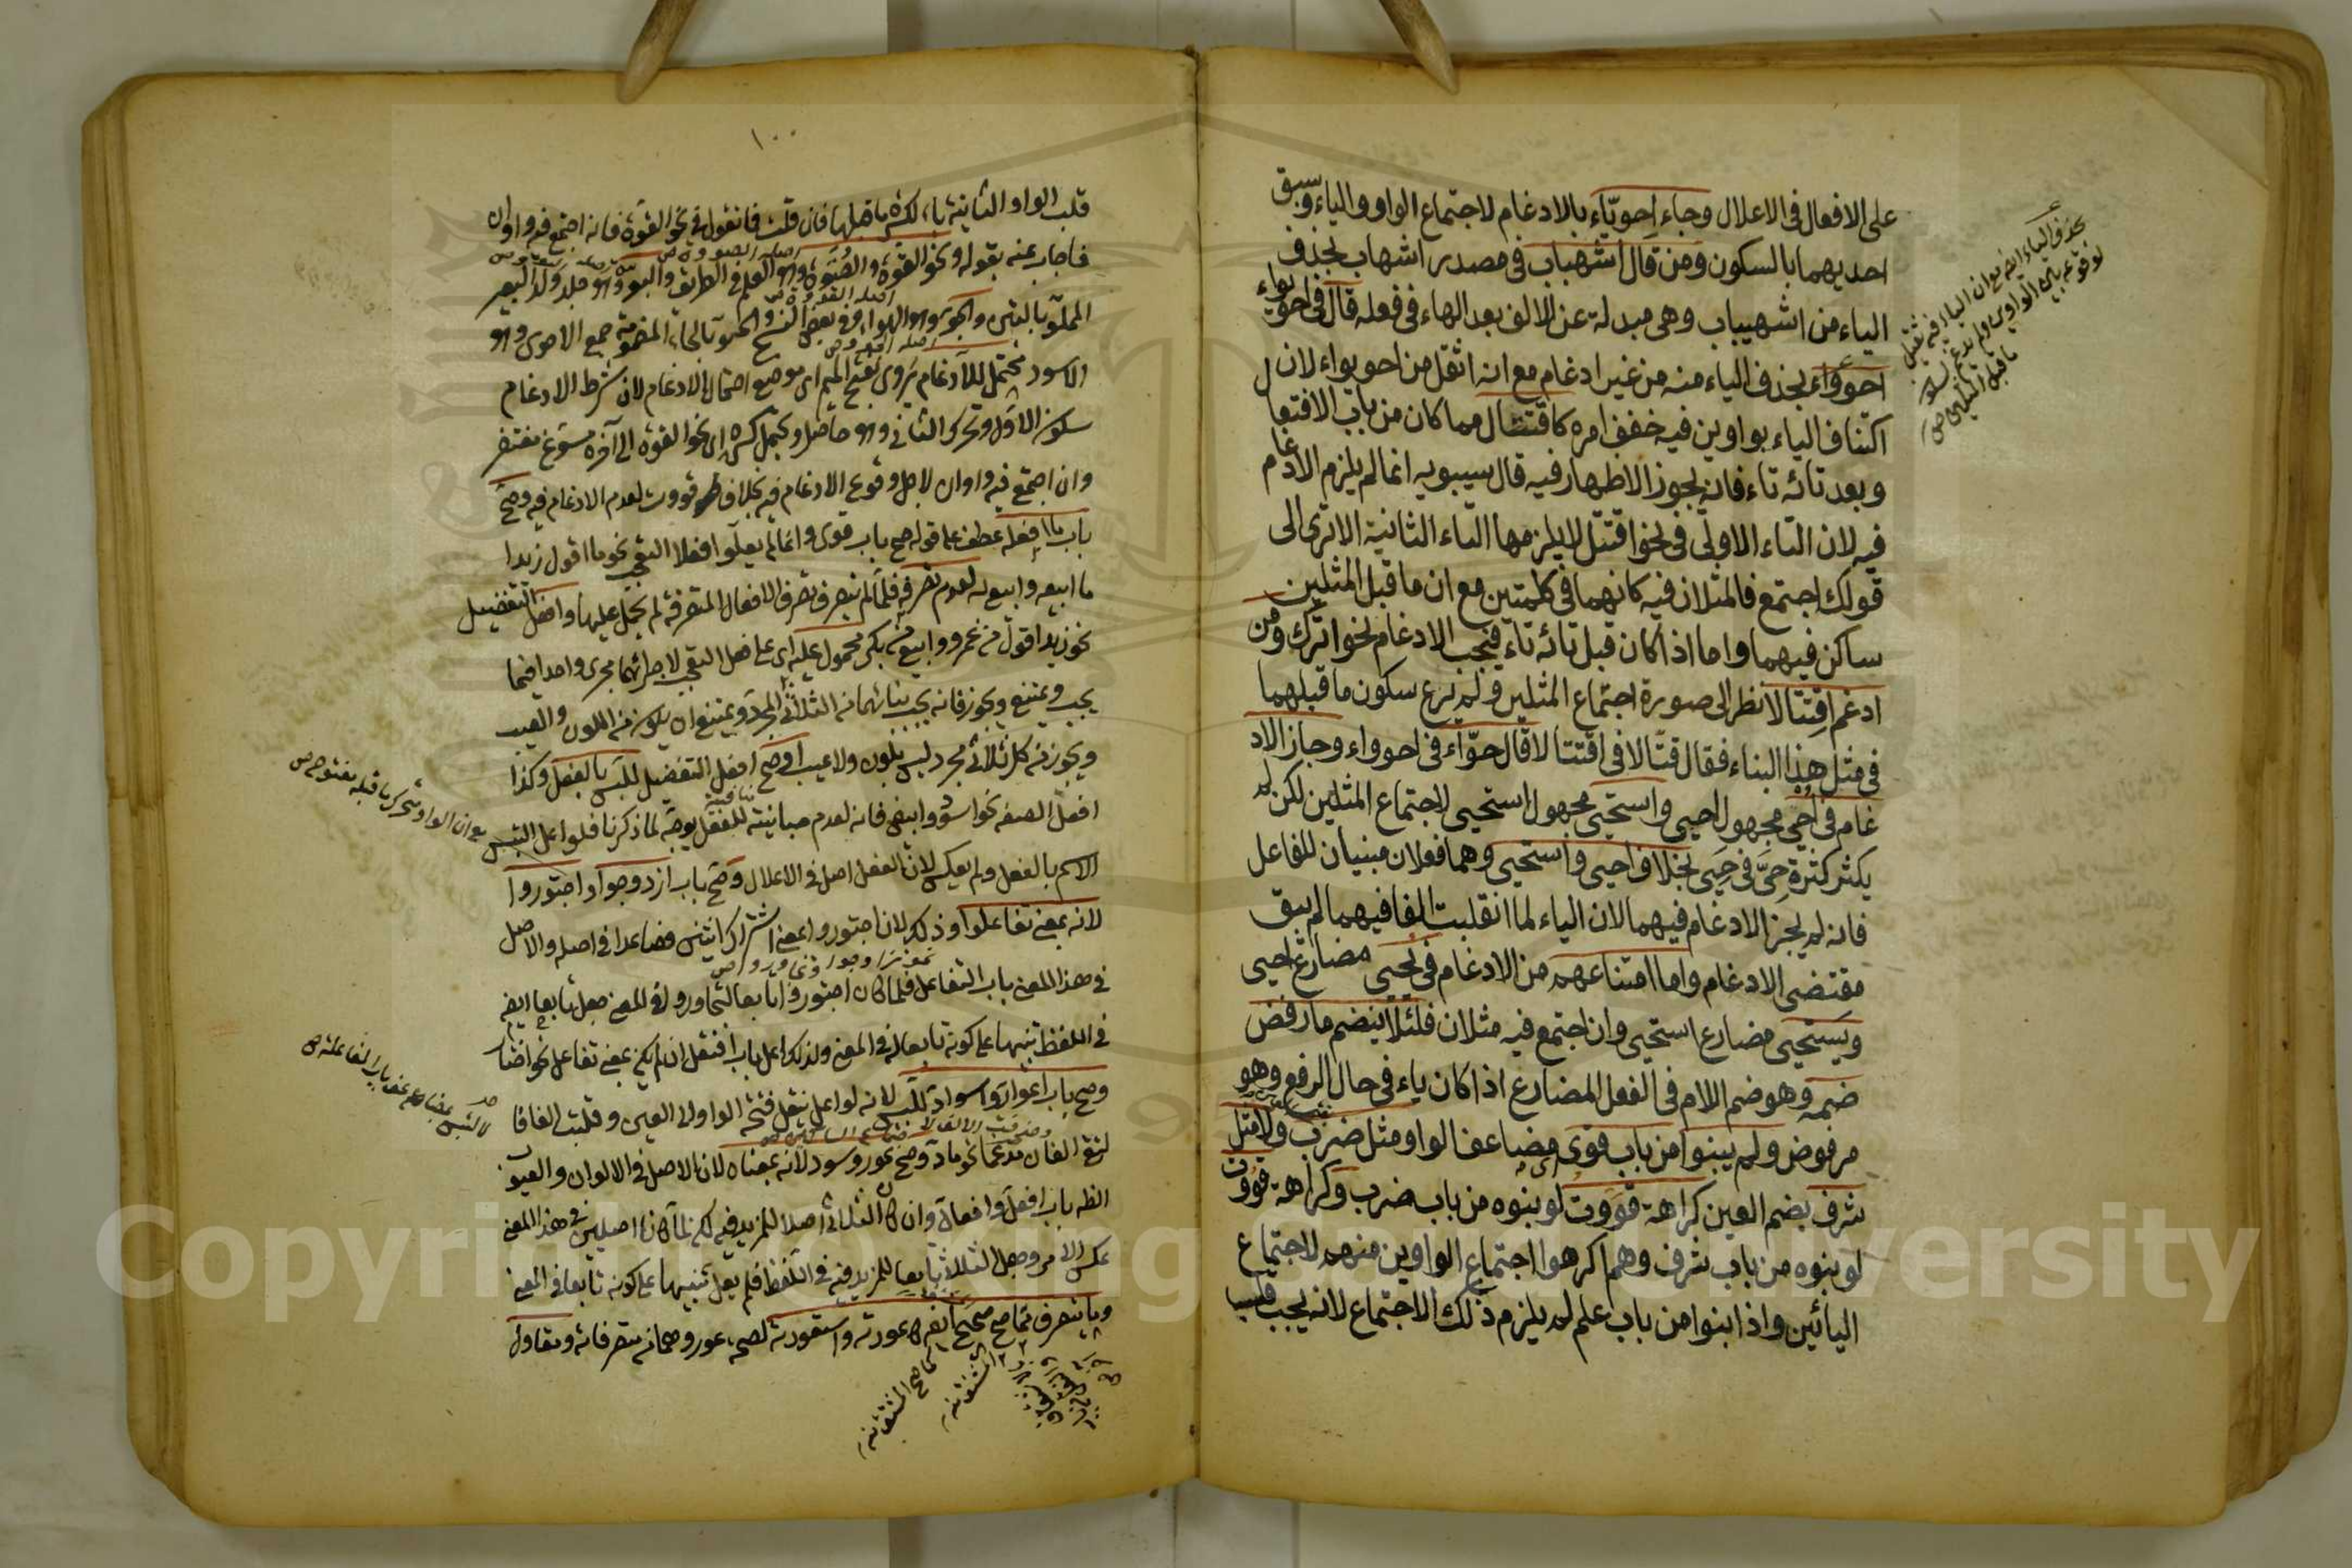 على الافعال فى الاعلال وجاء احويّاء بالادغام لاجتماع الواو والياء وسبق
احديهما بالسكون ومن قال اشهباب فى مصدر اشهاب بحذف
الياء من اشهيباب وهى مبدلة عن الالف بعد الهاء فى فعله قال فى احويواء
احوواء بحذف الياء منه من غير ادغام مع انه اثقل من احويواء لان
اكتناف الياء بواوين فيه خفف امره كاقتتال مما كان من باب الافتعال
وبعد تائه تاء فانه يجوز الاظهار فيه قال سيبويه انما لم يلزم الادغام
فيه لان التاء الاولى فى نحو اقتتل لا يلزمها التاء الثانية الا ترى الى
قولك اجتمع فالمثلان فيه كانهما فى كلمتين مع ان ما قبل المثلين
ساكن فيهما واما اذا كان قبل تائه تاء فيجب الادغام نحو اترك ومن
ادغم اقتتالا نظر الى صورة اجتماع المثلين ولم يرع سكون ما قبلهما
فى مثل هذا البناء فقال قتّالا فى اقتتالا قال حوّاء فى احوواء وجاز الاد
غام فى احى مجهول احيى واستحى مجهول استحيى لاجتماع المثلين لكن لم
يكثر كثرة حىّ فى حيى بخلاف احيى واستحيى وهما فعلان مبنيان للفاعل
فانه لم يجز الادغام فيهما لان الياء لما انقلبت الفا فيهما لم يبق
مقتضى الادغام واما امتناعهم من الادغام فى يحيى مضارع احيى
ويستحيى مضارع استحيى وان اجتمع فيه مثلان فلئلا ينضم ما رفض
ضمه وهو ضم اللام فى الفعل المضارع اذا كان ياء فى حال الرفع وهو
مرفوض ولم يبنوا من باب قوى مضاعف الواو مثل ضرب ولا مثل
شرف بضم العين كراهة قووت لو بنوه من باب ضرب وكراهة قووت
لو بنوه من باب شرف وهم اكرهوا اجتماع الواوين منهم لاجتماع
اليائين واذا بنوا من باب علم لم يلزم ذلك الاجتماع لانه يجب قلب
١٠٠
قلب الواو الثانية ياء لكسرة ما قبلها فان قلت فما نقول فى نحو القوة فانه اجتمع فيه واوان
فاجاب عنه بقوله ونحو القوة والصوة وهو العلم فى الطريق والبو وهو جلد ولد البعير
المملو بالتبن والجو وهو الهواء وفى بعض النسخ والحو بالحاء المضمومة جمع الاحوى وهو
الاسود محتمل للادغام يروى بفتح الميم اى موضع احتمال الادغام لان شرط الادغام
سكون الاول وتحرك الثانى وهو حاصل ويحتمل كسره اى نحو القوة الى آخره مسوغ مغتفر
وان اجتمع فيه واوان لاجل وقوع الادغام فيه بخلاف قووت لعدم الادغام فيه وصح
باب ما افعله عطف على قوله صح باب قوى وانما لم يعلوا افعل التعجب نحو ما اقول زيدا
ما ابيعه وابيع به لعدم تصرفه فلما لم يتصرف تصرف الافعال المتصرفة لم يحمل عليها وافعل التفضيل
نحو زيد اقول من عمرو وابيع من بكر محمول عليه اى على افعل التعجب لاجرائهما مجرى واحد فيما
يجب ويمتنع ويجوز فانه يجب بنائهما من الثلاثى المجرد ويمتنع ان يكون من اللون والعيب
ويجوز من كل ثلاثى مجرد ليس بلون ولا عيب او صح افعل التفضيل للبس بالفعل وكذا
افعل الصفة نحو اسود وابيض فانه لعدم مباينته للفعل بوجه لما ذكرنا فلو اعل التبس
الاسم بالفعل ولم يعكس لان الفعل اصل فى الاعلال وصح باب ازدوجوا واجتوروا
لانه بمعنى تفاعلوا وذلك لان اجتوروا بمعنى اشتراك اثنين فصاعدا فى اصله والاصل
فى هذا المعنى باب التفاعل فلما كان اجتوروا تابعا لتجاوروا فى المعنى جعل تابعا ايضا
فى اللفظ تنبيها على كونه تابعا له فى المعنى ولذلك اعل باب افتعل ان لم يكن بمعنى تفاعل نحو اختار
وصح باب اعوار واسواد للبس لانه لو اعل بنقل فتحة الواو الى العين وقلبت الفا
التقى الفان مدغما نحو ماد وصح عور وسود لانه بمعناه لان الاصل فى الالوان والعيوب
الظ باب افعل وافعال وان كان الثلاثى اصلا للمزيد فيه لكن لما كانا اصليين فى هذا المعنى
عكس الامر وجعل الثلاثى تابعا للمزيد فيه فى اللفظ فلم يعل تنبيها على كونه تابعا فى المعنى
وما يتصرف مما صح صحيح ايضا كاعورته واستعورته لصحة عور وهما من متصرفاته ومقاول
Copyright © King Saud University